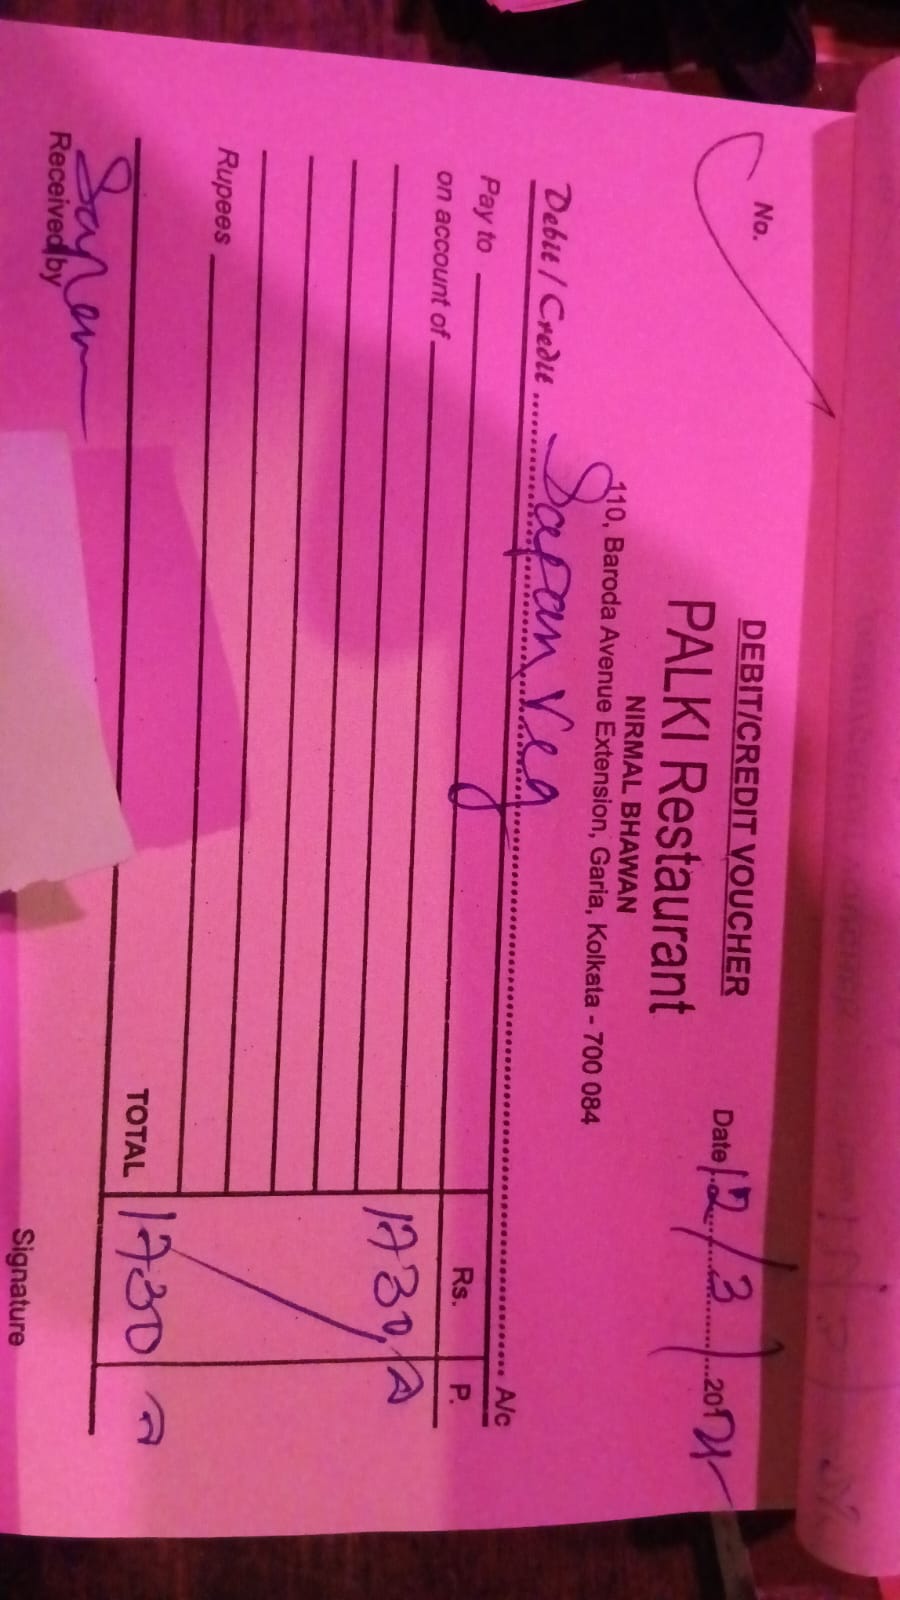 No.
DEBIT/CREDIT VOUCHER
PALKI Restaurant
NIRMAL BHAWAN
110, Baroda Avenue Extension, Garia, Kolkata - 700 084
Date 12/3/20
Debit / Credit Sapan Veg A/c
Pay to
on account of
Rs. P.
1730
Rupees
TOTAL 1730
Received by
Signature